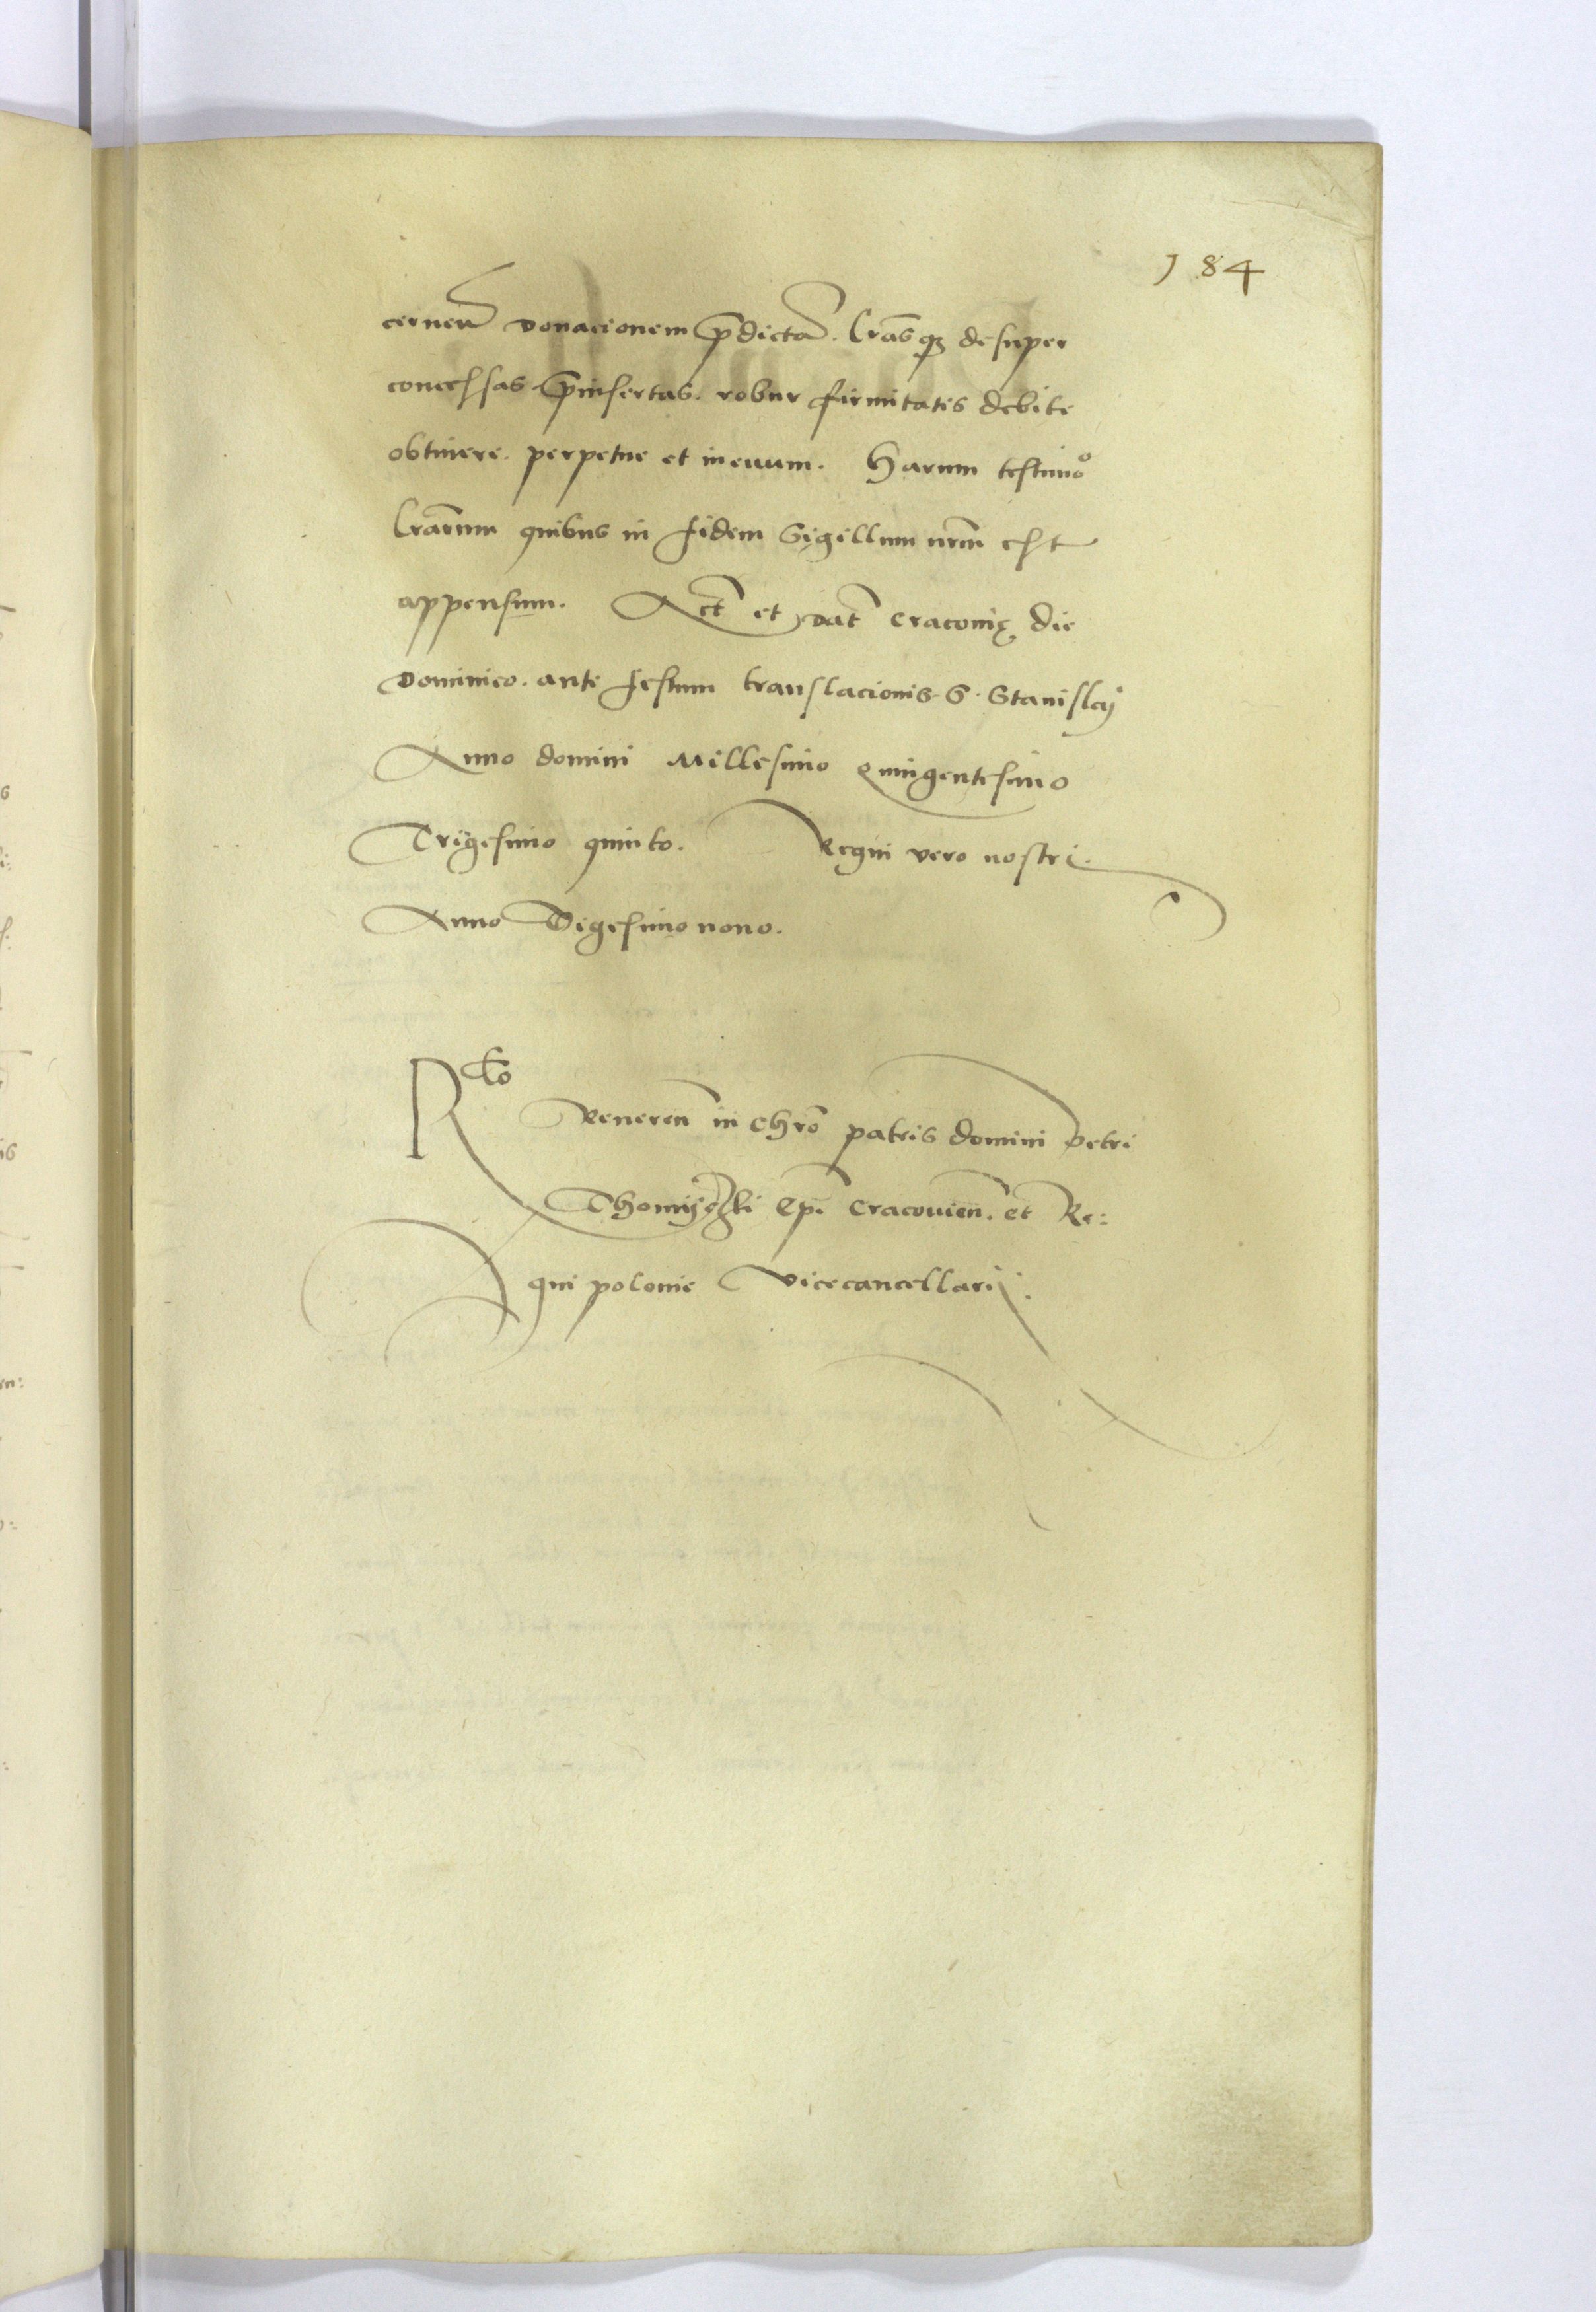 184
cernen̄ donacionem p̄dictā. Lr̄asq3 desuper
concessas p̄insertas. robur firmitatis debite
obtinere. perpetue et in euum. Harum testimoo
lr̄arum quibus in fidem Sigillum nr̄m est
appensum. Act̄ et dat̄ Cracovię die
Dominico. ante festum translacionis. S. Stanislaij
Anno domini Millesimo Quingentesimo
Trigesimo quinto. Regni vero nostri.
Anno Vigesimo nono.
Rlō
Reueren̄ in Chrō patris domini Petri
Thomiczki Ep̄i Cracouien̄. et Re:
gni polonie vicecancellarij: